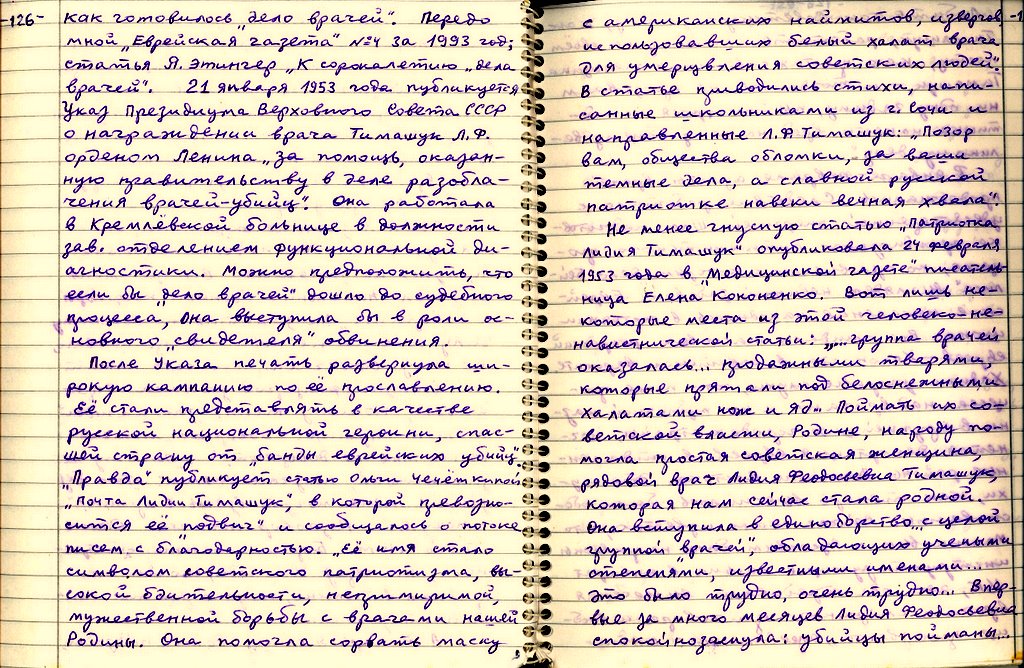 -126-
как готовилось „дело врачей“. Передо
мной „Еврейская газета“ №4 за 1993 год;
статья Я. Этингер „К сорокалетию „дела
врачей“. 21 января 1953 года публикуется
Указ Президиума Верховного Совета СССР
о награждении врача Тимашук Л.Ф.
орденом Ленина „за помощь, оказан-
ную правительству в деле разобла-
чения врачей-убийц“. Она работала
в Кремлёвской больнице в должности
зав. отделением функциональной ди-
агностики. Можно предположить, что
если бы „дело врачей“ дошло до судебного
процесса, она выступила бы в роли ос-
новного „свидетеля“ обвинения.
После Указа печать развернула ши-
рокую кампанию по её прославлению.
Её стали представлять в качестве
русской национальной героини, спас-
шей страну от „банды еврейских убийц“.
„Правда“ публикует статью Ольги Чечёткиной
„Почта Лидии Тимашук“, в которой превозно-
сится её „подвиг“ и сообщалось о потоке
писем с благодарностью. „Её имя стало
символом советского патриотизма, вы-
сокой бдительности, непримиримой,
мужественной борьбы с врагами нашей
Родины. Она помогла сорвать маску
с американских наймитов, извергов,
использовавших белый халат врача
для умерщвления советских людей“.
В статье приводились стихи, напи-
санные школьниками из г. Сочи и
направленные Л.Ф. Тимашук: „Позор
вам, общества обломки, за ваши
темные дела, а славной русской
патриотке навеки вечная хвала“.
Не менее гнусную статью „Патриотка
Лидия Тимашук“ опубликовала 24 февраля
1953 года в „Медицинской газете“ писатель-
ница Елена Кононенко. Вот лишь не-
которые места из этой человеко-не-
навистнической статьи: „...группа врачей
оказалась... продажными тварями,
которые прятали под белоснежными
халатами нож и яд.. Поймать их со-
ветской власти, Родине, народу по-
могла простая советская женщина,
рядовой врач Лидия Феодосьевна Тимашук,
которая нам сейчас стала родной.
Она вступила в единоборство „с целой
группой врачей“, обладающих учеными
степенями, известными именами...
Это было трудно, очень трудно... Впер-
вые за много месяцев Лидия Феодосьевна
спокойно заснула: убийцы пойманы.